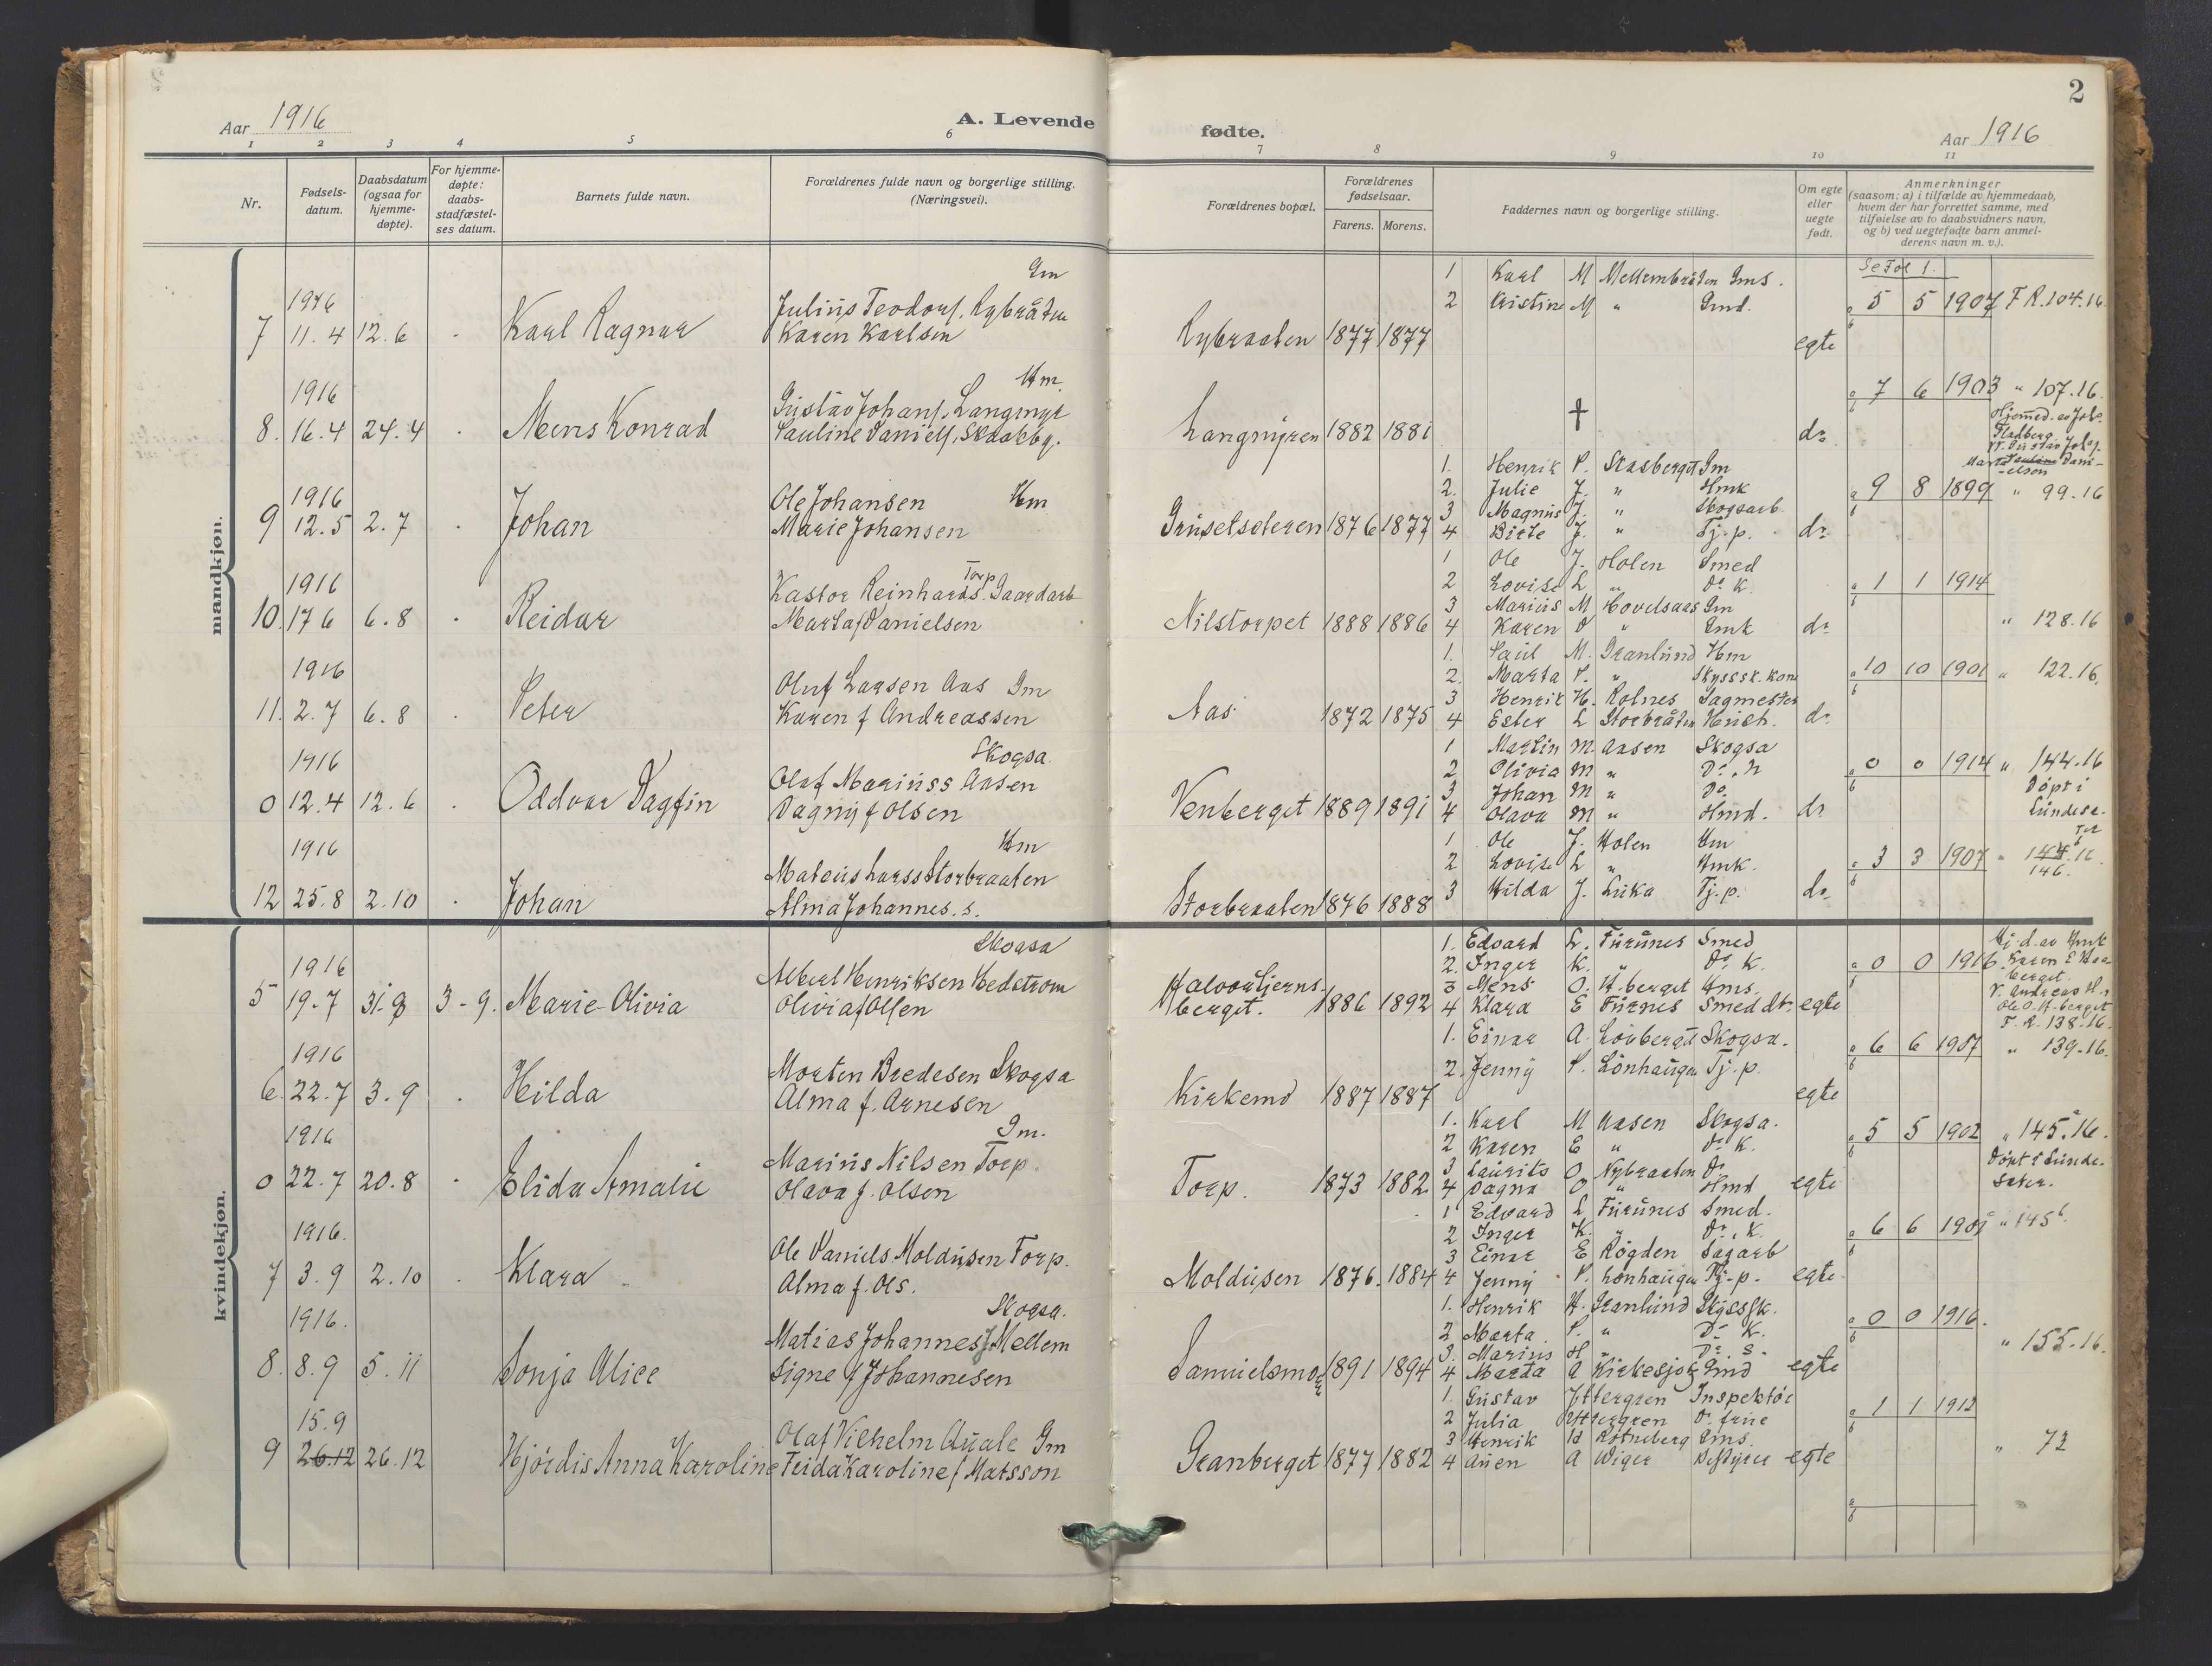 2
Aar 1916
A. Levende
fødte.
Aar 1916
1 2 3 4 5 6 7 8 9 10 11
Nr.
Fødsels-
datum.
Daabsdatum
(ogsaa for
hjemme-
døpte).
For hjemme-
døpte:
daabs-
stadfæstel-
ses datum.
Barnets fulde navn.
Forældrenes fulde navn og borgerlige stilling.
(Næringsvei).
Forældrenes bopæl.
Forældrenes
fødselsaar.
Farens. Morens.
Faddernes navn og borgerlige stilling.
Om egte
eller
uegte
født.
Anmerkninger
(saasom: a) i tilfælde av hjemmedaab,
hvem der har forrettet samme, med
tilføielse av to daabsvidners navn,
og b) ved uegtefødte barn anmel-
derens navn m. v.).
mandkjøn.
Gm
1916
Julius Teodorf. Rybråten
7 11.4 12.6 - Karl Ragnar
Karen Karlsen
Rybraaten 1877 1877
1 Karl M Mellembråten Gms.
2 Kristine M " Gmd.
egte
Se Fol 1.
a 5 5 1907 F R. 104.16
b
Hm.
1916
Gustav Johanf. Langmyr
8. 16.4 24.4 - Mens Konrad
Pauline Danielf. Skaakbg.
Langmyren 1882 1881
†
do
a 7 6 1903 " 107.16.
b
Hjemmed. av Johs.
Fladberg
V. Gustav Johs.
Marta Pauline Dani-
-elsen
1916
Ole Johansen Hm
9 12.5 2.7 - Johan
Marie Johansen
Gruselseteren 1876 1877
1. Henrik P. Skasberget Gm
2. Julie J. " Hmk
3 Magnus J. " Skogsarb.
4 Birte J. " Tj.p.
do
a 9 8 1899 " 99.16
b
1916
Torp.
Kastor Reinhards. Gaardarb
10. 17 6 6.8 - Reidar
Marta f Danielsen
Nilstorpet 1888 1886
1 Ole J. Holen Smed
2 Lovise L " Do K.
3 Marius M Hovelsaas Gm
4 Karen O " Gmk
do
a 1 1 1914
b
" 128.16
1916
Oluf Larsen Aas Gm
11. 2.7 6.8 - Peter
Karen f Andreassen
Aas 1872 1875
1. Paul M. Granlund Hm
2. Marta P. " Skyssk. kone
3 Henrik H. Rotnes Sagmester
4 Ester L Storbråten Hush.
do
a 10 10 1901 " 122.16.
b
Skogsa.
1916
Olaf Mariuss Aasen
0 12.4 12.6 - Oddvar Dagfin
Dagny f Olsen
Venberget 1889 1891
1 Martin M. Aasen Skogsa
2 Olivia M " Do. K
3 Johan M " Do.
4 Olava M " Hmd.
do
a 0 0 1914 " 144.16
b
Döpt i
Lundese-
ter
Hm
1916
Mateus Larss Storbraaten
12 25.8 2.10 - Johan
Alma Johannes. s.
Storbraaten 1876 1888
1 Ole J. Holen Hm
2 Lovise L " Hmk.
3 Hilda J. Luka Tj.p.
do
a 3 3 1907 " 144.16.
b
146.
kvindekjøn.
Skogsa
1916
Albert Henriksen Hedstrom
5 19.7 31.8 3-9. Marie Olivia
Olivia f Olsen
Halvortjerns-
berget. 1886 1892
1. Edvard L. Furunes Smed
2. Inger K. " Do. K.
3 Mens O. H.berget Hms.
4 Klara E Furnes Smed dt.
egte
a 0 0 1916
b
Hj.d. av Hmk
Karen E Haa
berget.
V. Andreas H.,
Ole O. H.berget
F. R. 138.16.
1916
Morten Bredesen Skogsa
6. 22.7 3.9 - Hilda
Alma f. Arnesen
Kirkemo 1887 1887
1. Einar A. Lövberget Skogsa.
2. Jenny P. Lönhaugen Tj.p.
egte
a 6 6 1907 " 139.16.
b
Gm.
1916
Marius Nilsen Torp.
0 22.7 20.8 - Elida Amalie
Olava f. Olsen
Torp. 1873 1882
1. Karl M Aasen Skogsa.
2 Karen E " do K.
3 Laurits O Nybraaten Do
4 Dagna O " Hmd
egte
a 5 5 1902 " 145.a16.
b
Döpt i Lunde-
seter.
1916.
Ole Daniels Moldusen Torp.
7 3.9 2.10 - Klara
Alma f. Ols.
Moldusen 1876. 1884
1 Edvard L Furunes Smed.
2 Inger K. " Do. K.
3 Einar E Rögden Sagarb
4 Jenny P. Lönhaugen Tj.p.
egte
a 6 6 1905 " 145b.
b
Skogsa.
1916.
Matias Johannes f Mellem
8. 8.9 5.11 Sonja Alice
Signe f Johannesen
Samuelsmo 1891 1894
1. Henrik H. Granlund Skyssk.
2. Marta P. " Do K.
3. Marius H " Do. S.
4 Marta A Kirkesjö Gmd
egte
a 0 0 1916.
b
" 155.16.
15.9
Olaf Vilhelm Quale Gm
9 26.12 26.12 Hjördis Anna Karoline
Frida Karoline f Matsson
Granberget 1877 1882
1. Gustav Yttergren Inspektör
2 Julia Yttergren Do. frue
3 Henrik H Rotneberg Gms.
4 Auen A Wiger
egte
a 1 1 1912
b
" 72
a
b